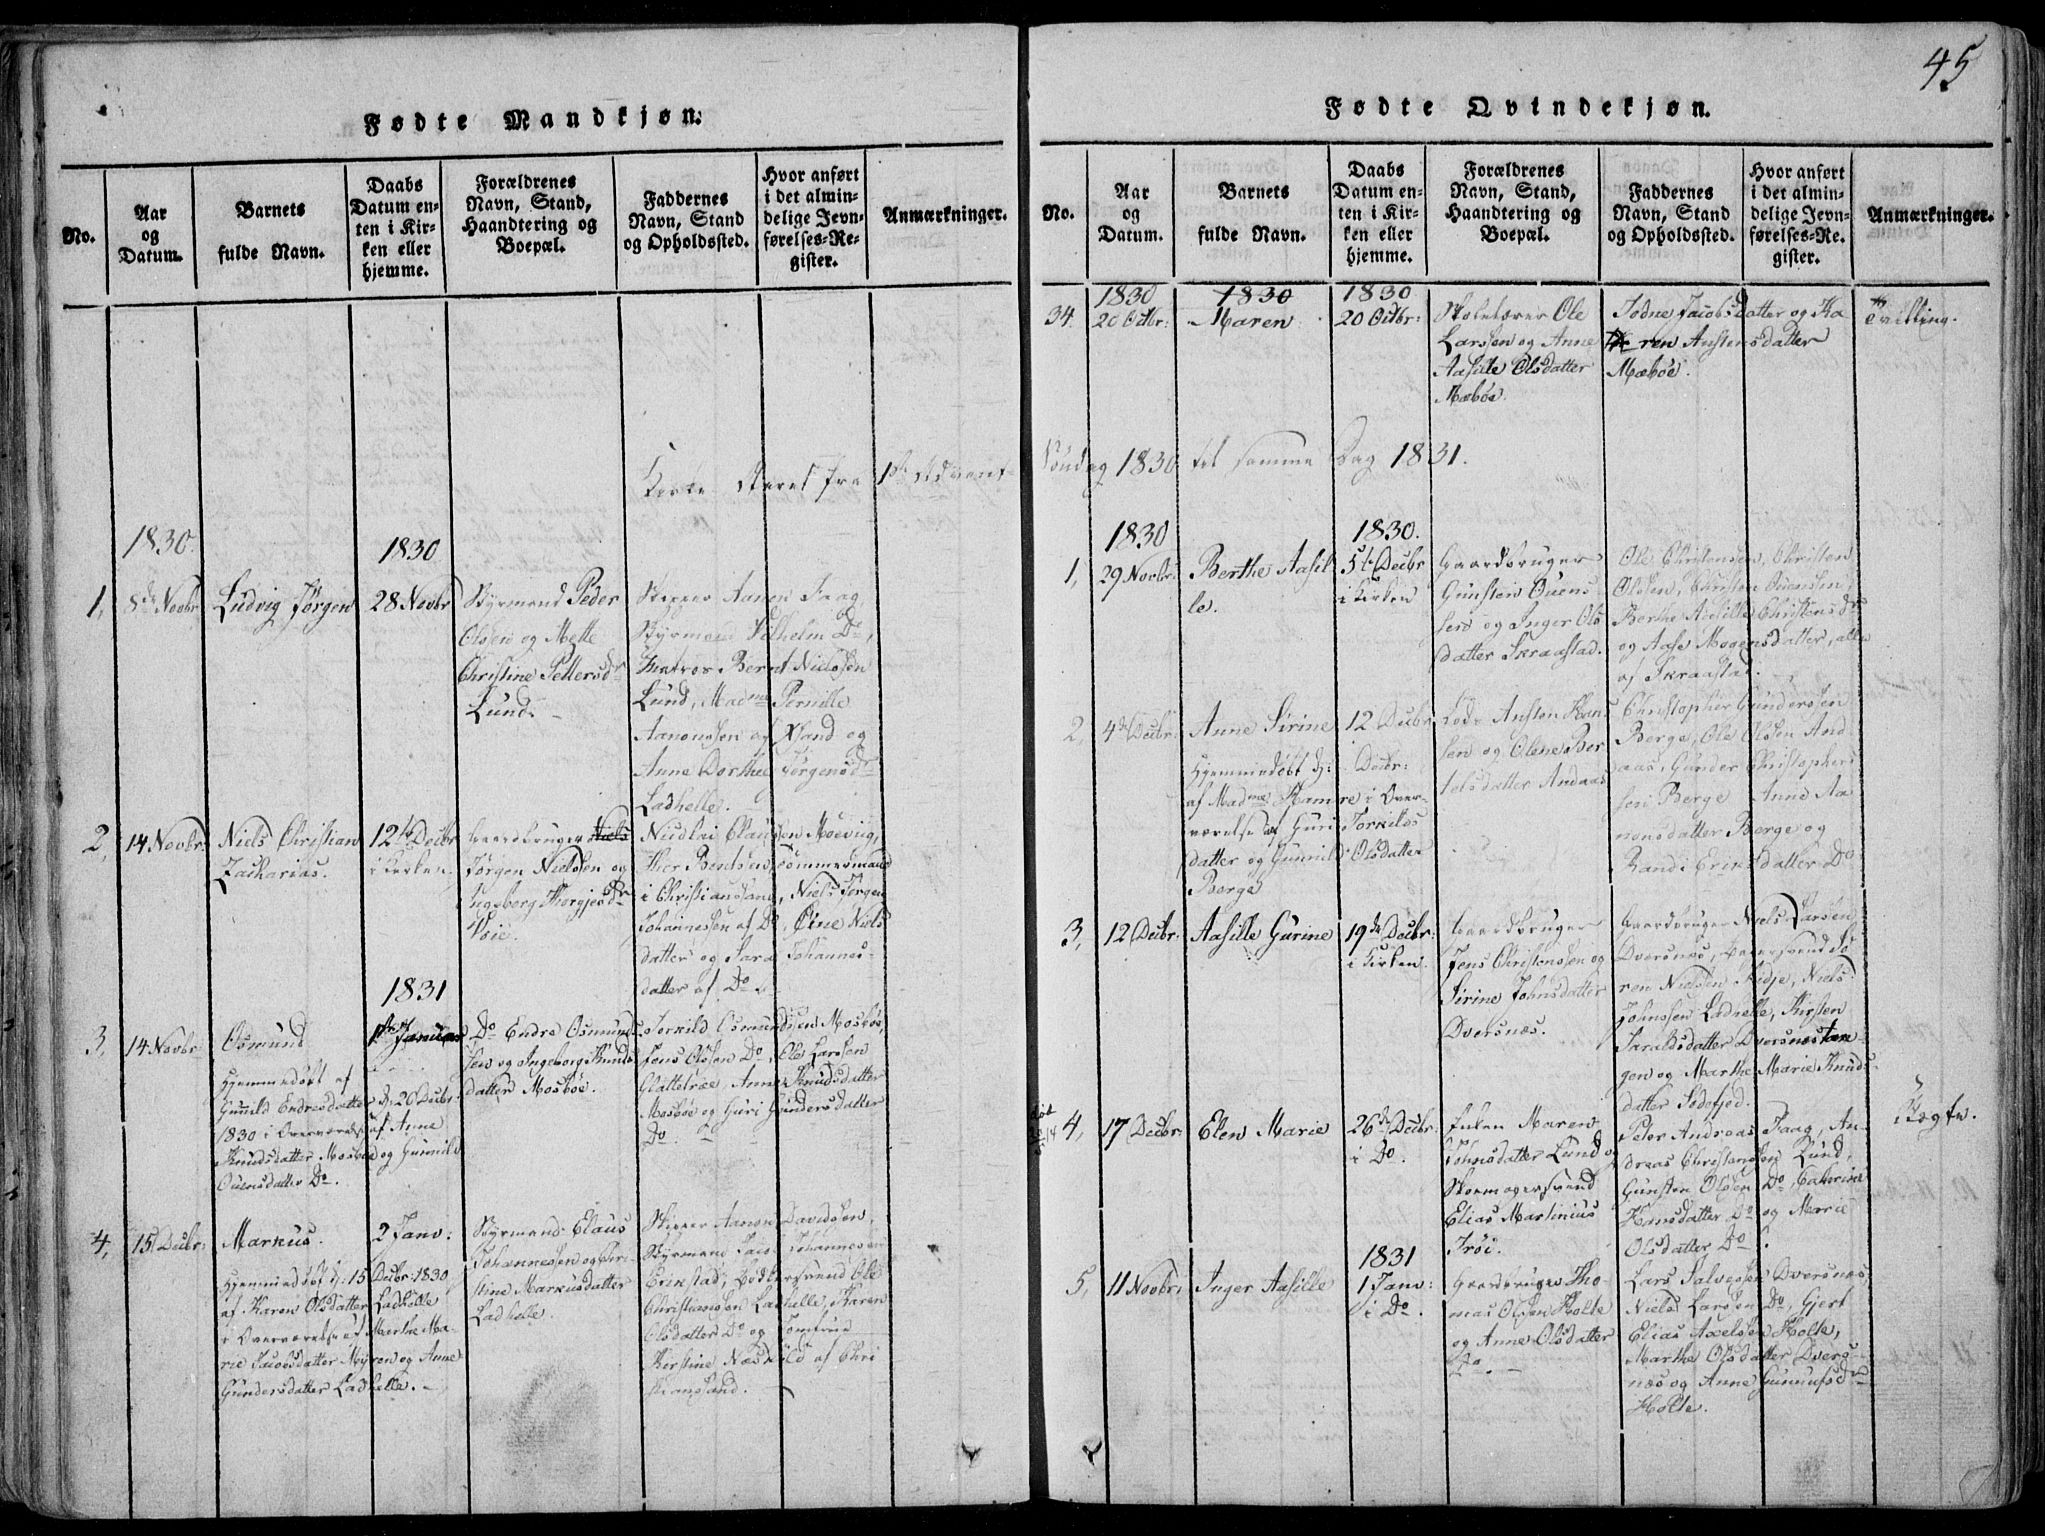 45
Fødte Mandkjøn.
No.
Aar
og
Datum.
Barnets
fulde Navn.
Daabs
Datum en-
ten i Kir-
ken eller
hjemme.
Forældrenes
Navn, Stand,
Haandtering og
Boepæl.
Faddernes
Navn, Stand
og Opholdssted.
Hvor anført
i det almin-
delige Jevn-
førelses-Re-
gister.
Anmærkninger.
Kirke Aaret fra 1ste Advent-
1830.
1830
1,
8de Novbr
Ludvig Jørgen
28 Novbr
Styrmand Peder
Olsen og Mette
Christine Pettersdr
Lund. -
Skipper Aanen Faag,
Styrmand Vilhelm Do,
Matros Bernt Nielssen
Lund, Madme Pernille
Aanonssen af Xsand og
Anne Dorthee Jørgensdr
Ladhelle.
2,
14 Novbr:
Niels Christian
Zacharias.
12te Decbr
i Kirken.
Gaardbruger Niels
Jørgen Nielssen og
Ingeborg Thorgjesdr
Voie.
Nicolai Claussen Moeviig,
Ther Bentsen, Tømmermand
i Christiansand, Niels Jørgen
Johannessen af Do, Oine Niels
datter og Sara Johannes-
datter af Do.
1831
3,
14 Novbr
Osmund
Hjemmedøbt af
Gunild Endresdatter d: 20 Decbr:
1830 i Overværelse af Anne
Knudsdatter Mosbøe og Gunild
Ouensdatter Do.
1ste Januar
Do Endre Osmunds-
sen og Ingeborg Knuds
datter Mosbøe.
Torkild Osmundssen Mosbøe,
Jens Olssen Do, Ole Larssen
Glattetræe, Anne Knudsdatter
Mosbøe og Guri Gundersdatter
Do.
4,
15 Decbr:
Markus.
Hjemmedøbt d: 15 Decbr: 1830
af Karen Olsdatter Ladhelle
i Overværelse af Marthe Ma-
rie Jacobsdatter Myren og Anne
Gundersdatter Ladhelle. -
2 Janv:
Styrmand Claus
Johannessen og Chri-
stine Markusdatter
Ladhelle.
Skipper Aanon Davidssen,
Styrmand Jacob Johannessen
Erikstad, Bødkersvend Ole
Christianssen Ladhelle, Karen
Olsdatter Do og Jomfrue
Kirstine Næsvild af Chri
stiansand.
Fødte Qvindekjøn.
No.
Aar
og
Datum.
Barnets
fulde Navn.
Daabs
Datum en-
ten i Kir-
ken eller
hjemme.
Forældrenes
Navn, Stand,
Haandtering og
Boepæl.
Faddernes
Navn, Stand
og Opholdssted.
Hvor anført
i det almin-
delige Jevn-
førelses-Re-
gister.
Anmærkninger.
1830
1830
1830
34.
20 Octbr:
Maren
20 Octbr:
Skolelærer Ole
Larssen og Anne
Aasille Olsdatter
Mæbøe.
Todne Jacobsdatter og Ka
ren Anstensdatter
Mæbøe.
Tvilling.
Søndag 1830 til samme Dag 1831.
1830
1830.
1,
29 Novbr:
Berthe Aasil
le.
5te Decbr
i Kirken
Gaardbruger
Gunsten Ouens
sen og Inger Ols
datter Skraastad.
Ole Christensen, Christen
Olssen, Christen Ouenssen,
Berthe Aasille Christensdr
og Aase Mogensdatter, alle
af Skraastad.
2,
4de Decbr:
Anne Sirine
Hjemmedøbt d:
af Madme Hamre i Over-
værelse af Guri Torkilds
datter og Gunnild Olsdatter
Berge
12 Decbr
Decbr:
Lods Ansten Han
sen og Olene Ber
telsdatter Andaas
Christopher Gunderssen
Berge, Ole Olssen And
aas, Gunder Christophers
sen Berge Anne Aa
nonsdatter Berge og
Randi Eriksdatter Do
3,
12 Decbr:
Aasille Gurine
19de Decbr:
i Kirken.
Gaardbruger
Jens Christenssen og
Sirine Johnsdatter
Dversnæs.
Gaardbruger Niels Larssen
Dversnæs, Sø
ren Nielssen Kidje, Niels
Johnssen Ladhelle, Kirsten
Taraldsdatter Dversnæstan
gen og Marthe Marie Knuds-
datter Sødefjed.
4,
17 Decbr:
Elen Marie
26de Decbr:
i Do.
Enken Maren
Johnsdatter Lund og
Skomagersvend
Elias Martinius
Trøi.
Peter Andreas Faag, An-
dreas Christianssen Lund,
Gunsten Olssen Do, Cathrine
Hansdatter Do og Marie
Olsdatter Do.
Uægte.
1831
5,
11 Novbr:
Inger Aasille
1 Janv:
i Do.
Gaardbruger Tho
mas Olssen Holte
og Anne Olsdatter
Do. -
Lars Salvessen Dversnæs
Niels Larssen Do, Gjert
Elias Axelssen Holte,
Marthe Olsdatter Dvers-
næs og Anne Gunnufsdr
Holte.